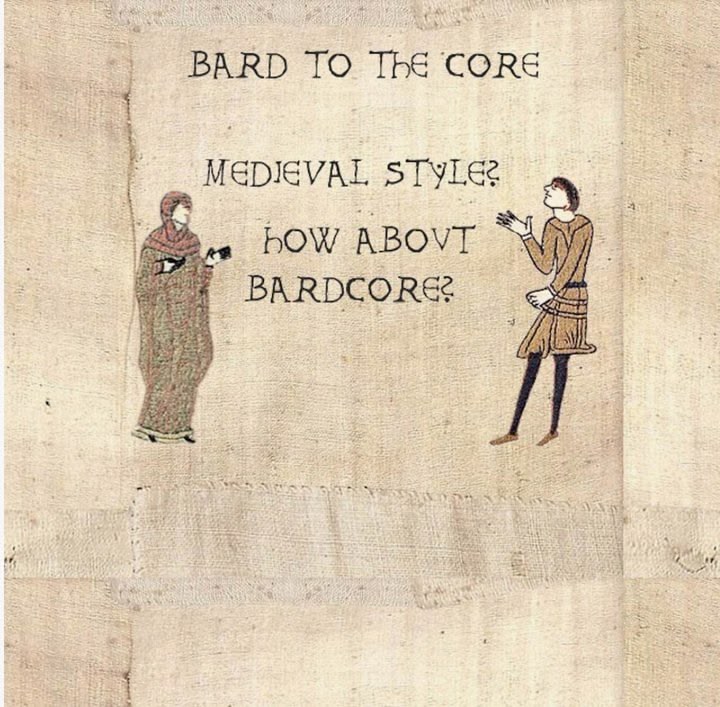 BARD TO THE CORE
MEDIEVAL STYLE?
HOW ABOVT
BARDCORE?